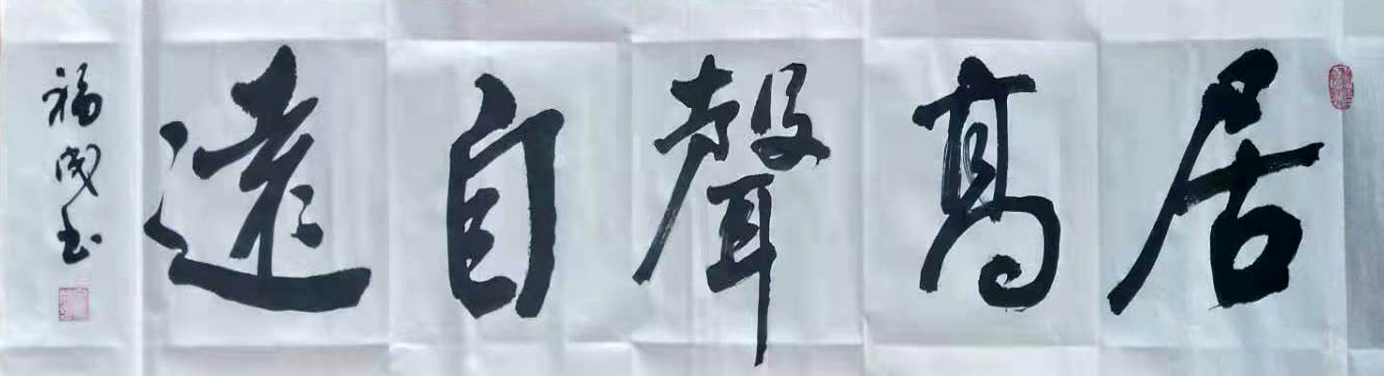 居高聲自遠
福成书